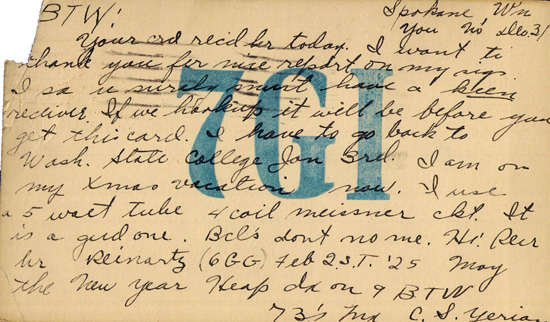 Spokane Wn
BTW! You No Dec. 31
Your crd recd hr today. I want ti
thank you fer nice report on my sigs.
I sa u surely must have a keen
reciver. If we hookup it will be before you
get this card. I have to go back to
Wash. State College Jan 3rd. I am on
my Xmas vacation now. I use
a 5 watt tube 4 coil meissner ckt. It
is a gud one. Bcls dont no me. Hi.
hr Reinartz (6GG) Feb 2 S.T. '25 May
the New Year Heap Dx on 9 BTW
73's C. S. Yerian
7GI